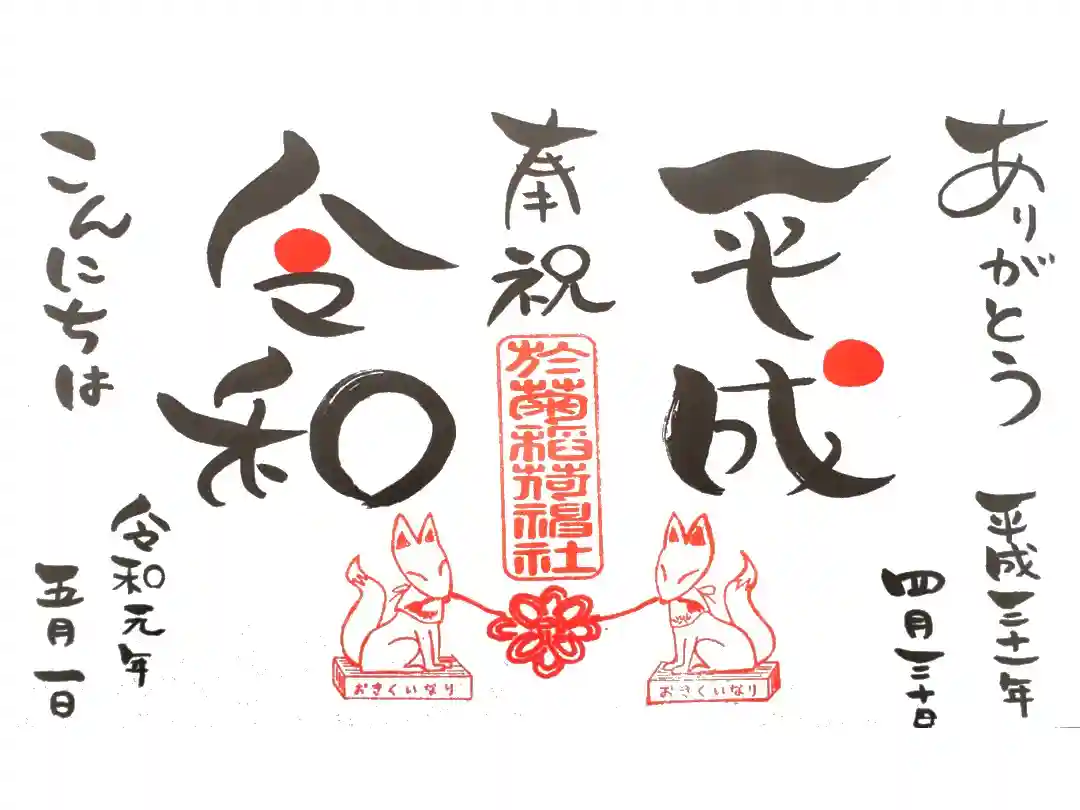 ありがとう
平成三十一年
四月三十日
平成
奉祝
於菊稲荷神社
おきくいなり
おきくいなり
令和
こんにちは
令和元年
五月一日